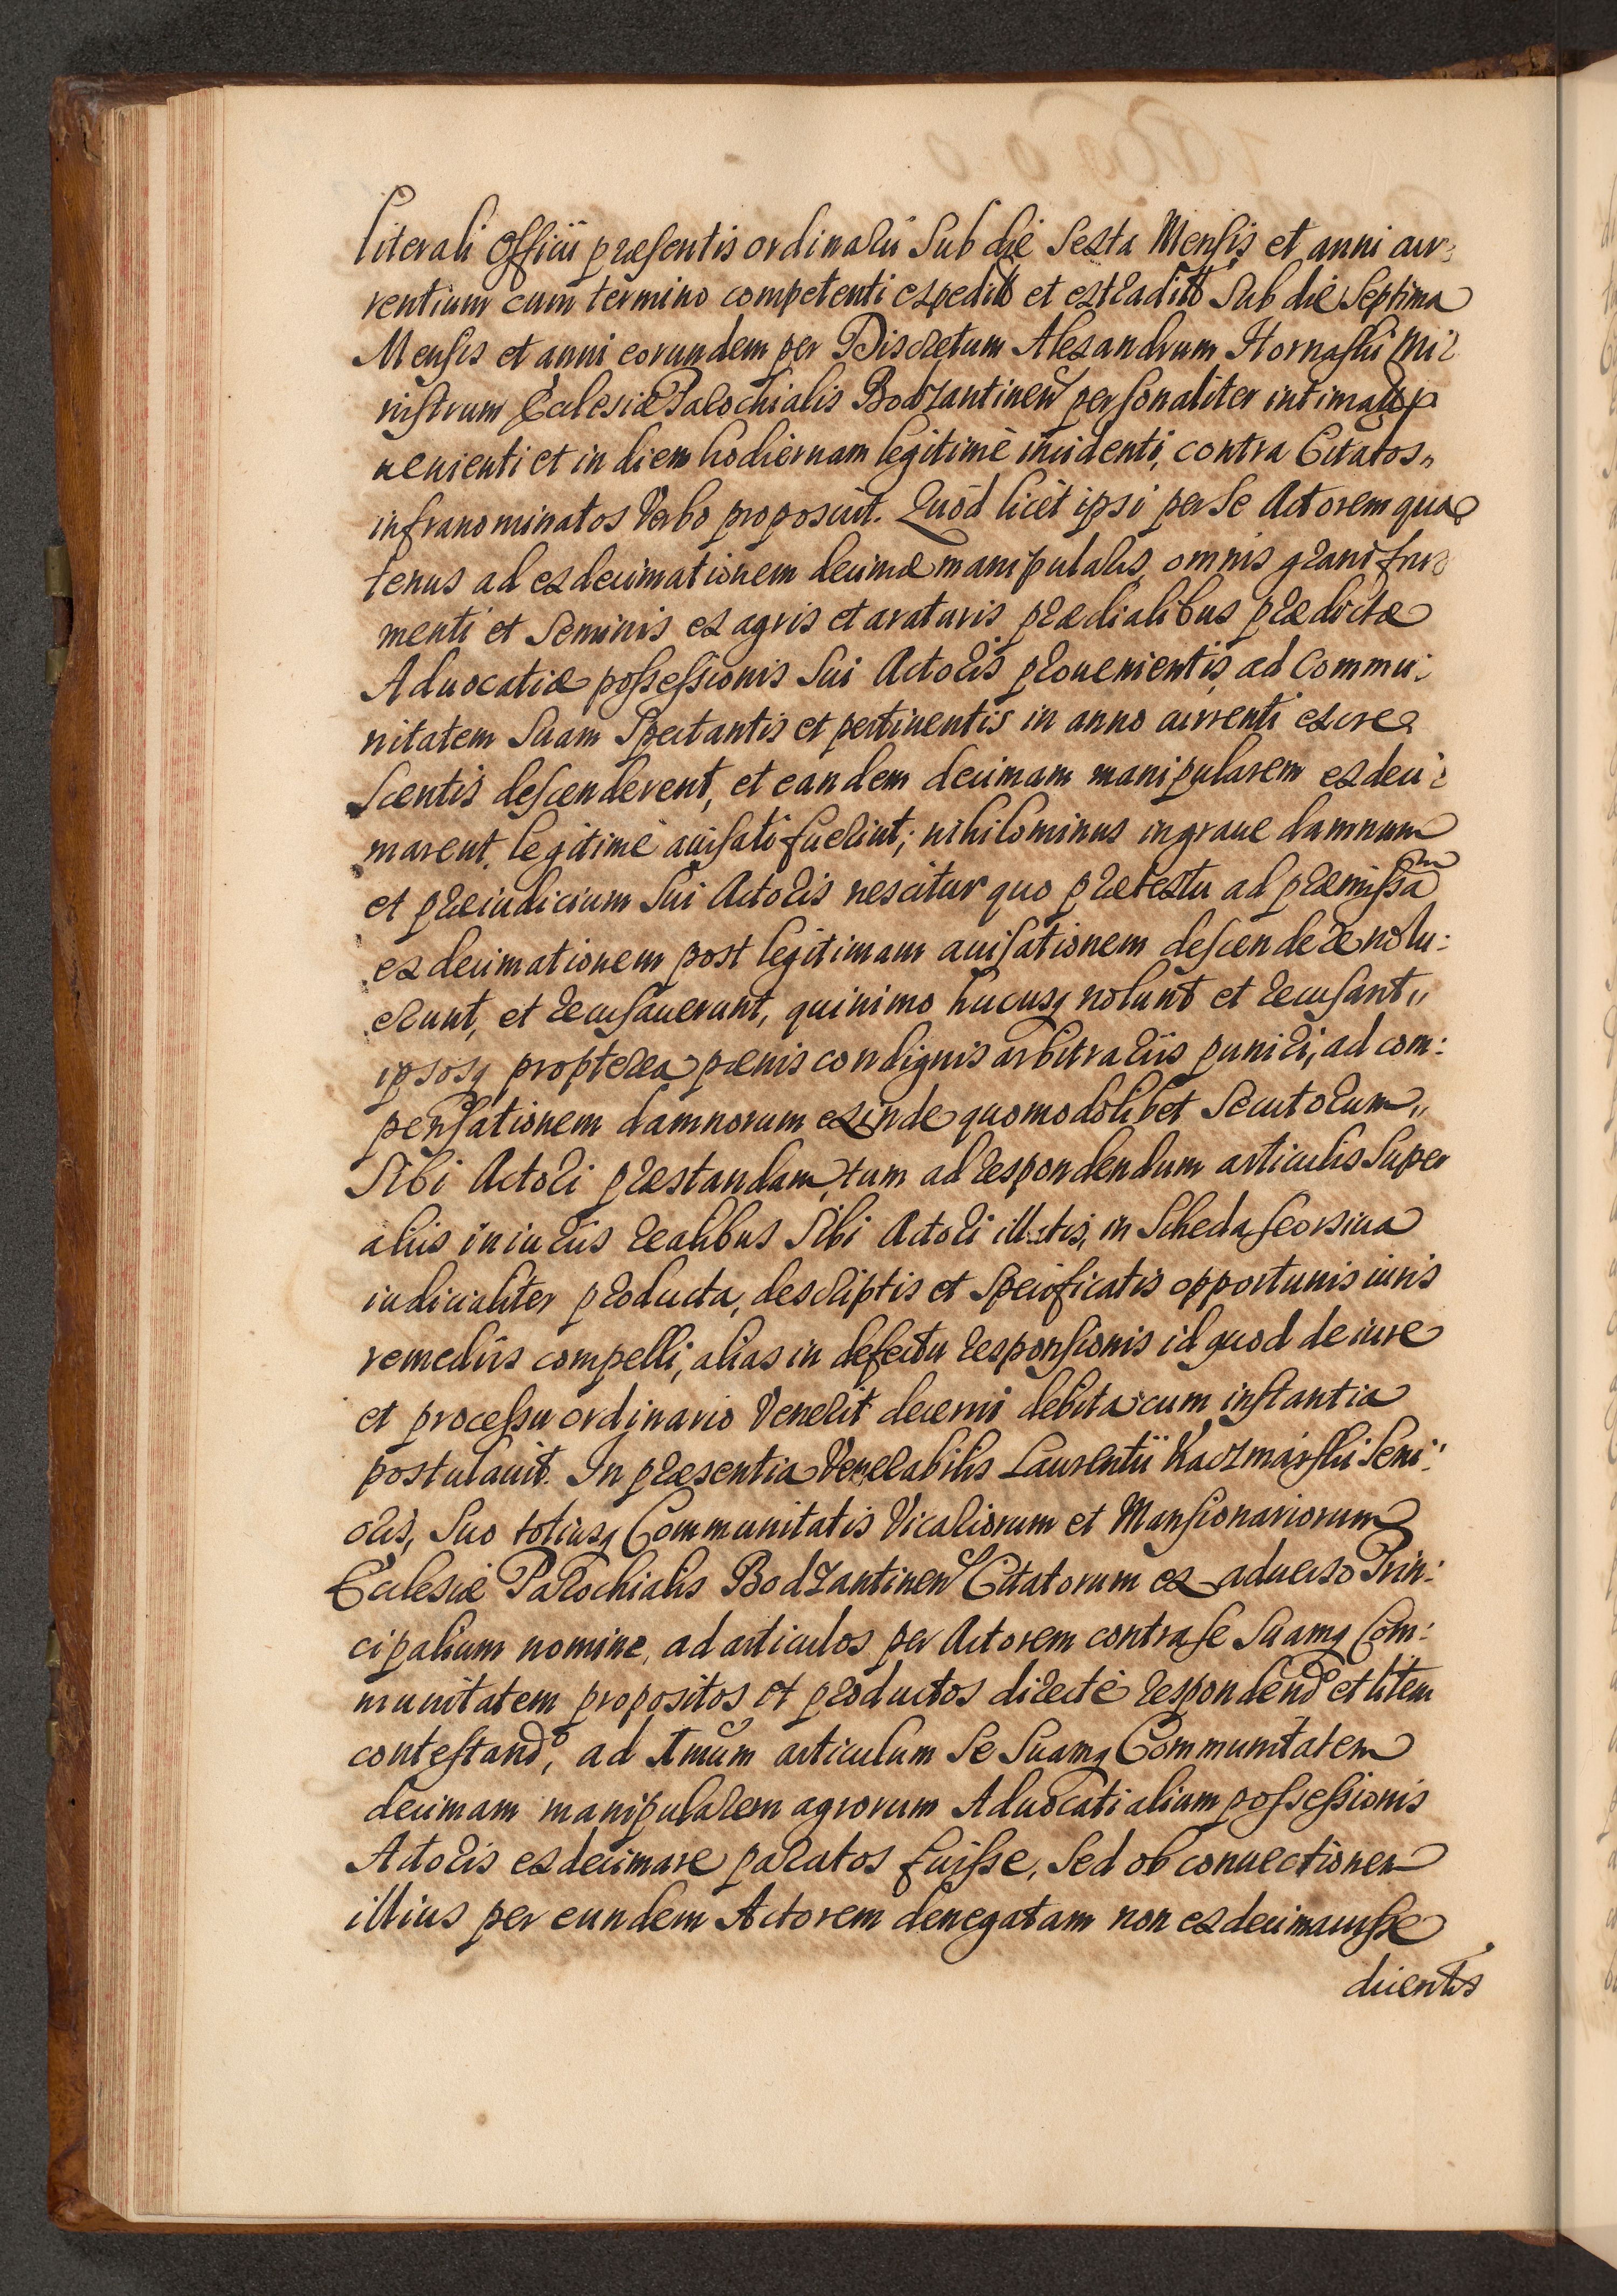 literali Officii præsentis ordinarii Sub die Sexta Mensis et anni cur:
rentium cum termino competenti expedito et extradito Sub die Septima
Mensis et anni eorundem per Discretum Alexandrum Hornaski Mi:
nistrum Ecclesiæ Parochialis Bodzantinen personaliter intimato p
uenienti et in diem hodiernam legitimè incidenti, contra Citatos,,
infranominatos Verbo proposuit. Quòd licèt ipsi per Se Actorem qua
tenus ad exdecimationem decimæ manipularis omnis grani fru:
menti et Seminis ex agris et araturis prædialibus prædictæ
Aduocatiæ possessionis Sui Actoris prouenientis, ad Commu:
nitatem Suam Spectantis et pertinentis in anno currenti excre:
scentis descenderent, et eandem decimam manipularem exdeci:
marent, legitimè auisati fuerint; nihilominus in graue damnum
et præiudicium Sui Actoris nescitur quo prætextu ad præmissam
exdecimationem post legitimam auisationem descendere nolu:
erunt, et recusauerunt, quinimo hucusq nolunt et recusant,,
ipsosq propterea pænis condignis arbitrariis puniri, ad com:
pensationem damnorum exinde quomodolibet Secutorum,,
Sibi Actori præstandam, tum ad respondendum articulis Super
aliis iniuriis realibus Sibi Actori illatis, in Scheda seorsiua
iudicialiter producta, descriptis et Specificatis opportunis iuris
remediis compelli, alias in defectu responsionis id quod de iure
et processu ordinario Venerit decerni debita cum instantia
postulauit. In præsentia Venerabilis Laurentii Kaczmarski Seni:
oris, Suo totiusq Communitatis Vicariorum et Mansionariorum
Ecclesiæ Parochialis Bodzantinen Citatorum ex aduerso Prin:
cipalium nomine, ad articulos per Actorem contra se Suamq Com:
munitatem propositos et productos directè respondendo et litem
contestando, ad Imum articulum Se Suamq Communitatem
decimam manipularem agrorum Aduocatialium possessionis
Actoris exdecimare paratos fuisse, Sed ob conuectionem
illius per eundem Actorem denegatam non exdecimauisse
dicentis